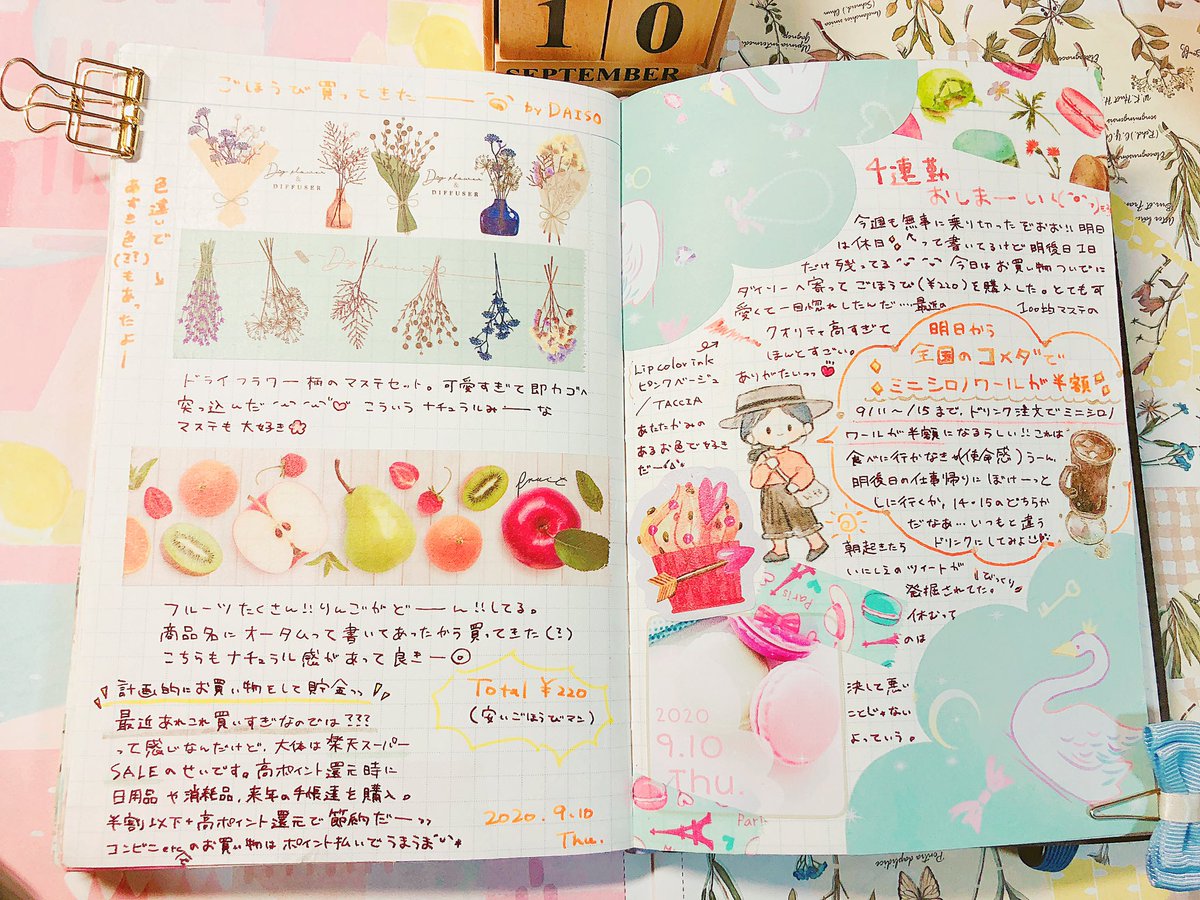 10
SEPTEMBER
ごほうび買ってきたーー by DAISO
Dry flower
& DIFFUSER
Dry flower
& DIFFUSER
色違いで
あずき色(??)もあったよー
ドライフラワー柄のマステセット。可愛すぎて即カゴへ
突っ込んだ こういうナチュラルみーーな
マステも大好き
fruit
フルーツたくさん!!りんごがどーーん!!してる。
商品名にオータムって書いてあったから買ってきた(?)
こちらもナチュラル感があって良きー◎
計画的にお買い物をして貯金ッッ
最近あれこれ買いすぎなのでは???
って感じなんだけど、大体は楽天スーパー
SALEのせいです。高ポイント還元時に
日用品や消耗品、来年の手帳達を購入。
半割以下+高ポイント還元で節約だーッッ
コンビニetcのお買い物はポイント払いでうまうま
Total ¥220
(安いごほうびマン)
2020.9.10
Thu.
4連勤
おしまーい!
今週も無事に乗り切ったぞおお!!明日
は休日 って書いてるけど明後日1日
だけ残ってる 今日はお買い物ついでに
ダイソーへ寄ってごほうび(¥220)を購入した。とても可
愛くて一目惚れしたんだ…最近の 100均マステの
クオリティ高すぎて
ほんとすごい。
ありがたいッッ
Lip color ink
ピンクベージュ
/TACCIA
あたたかみの
あるお色で好き
だー
明日から
全国のコメダで
ミニシロノワールが半額
9/11〜/15まで、ドリンク注文でミニシロノ
ワールが半額になるらしい!!これは
食べに行かなきゃ(使命感)うーん、
明後日の仕事帰りにぼけーっと
しに行くか、14・15のどちらか
だなあ…いつもと違う
ドリンクにしてみよ
朝起きたら
いにしえのツイートが
発掘されてた。びっくり
休むって
のは
決して悪い
ことじゃない
よっていう。
Paris
2020
9.10
Thu.
Paris